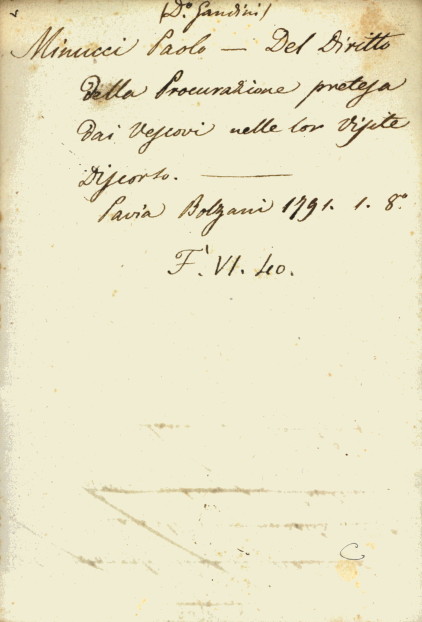 (D.º Gandini)
Minucci Paolo — Del Diritto
della Procurazione pretesa
dai Vescovi nelle lor Visite
Discorso. ———
Pavia Bolzani 1791. 1. 8.º
F. VI. 40.
C